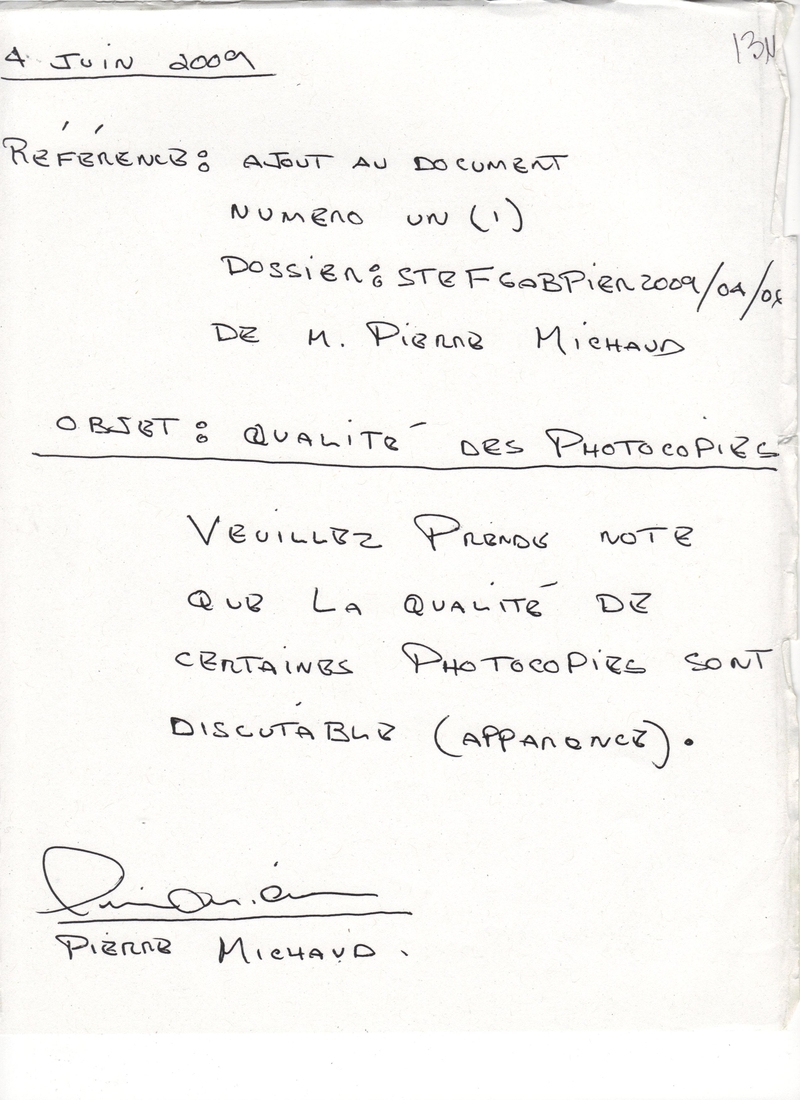 13N
4 JUIN 2009
RÉFÉRENCE: AJOUT AU DOCUMENT
NUMERO UN (1)
DOSSIER: STEFGABPIER2009/04/08
DE M. PIERRE MICHAUD
OBJET: QUALITÉ DES PHOTOCOPIES
VEUILLEZ PRENDE NOTE
QUE LA QUALITÉ DE
CERTAINES PHOTOCOPIES SONT
DISCUTABLE (APPARENCE).
PIERRE MICHAUD.